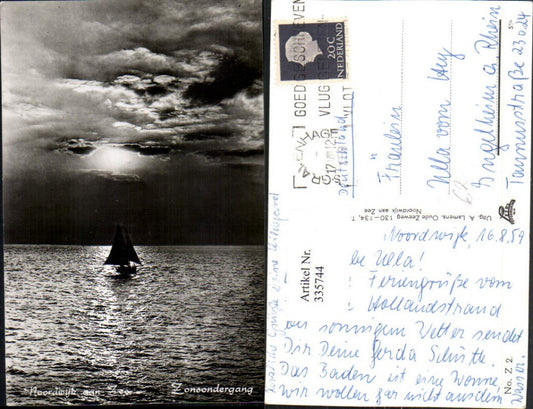 Noordwijk aan Zee - Zonsondergang
20 C
NEDERLAND
GOEDGESCHREVEN
VLUG
17.
12
1959
Fräulein
Ulla vom Hey
Engelheim a Rhein
Taunusstraße 23024
62
5¼
Uitg. A. Lamens, Oude Zeeweg 130-134, T.
Noordwijk aan Zee
Artikel Nr.
335744
Noordwijk, 16.8.59
Ulla!
Feriengrüße vom
Hollandstrand
sonnigem Wetter sendet
Dir Deine Gerda Schütte.
Das Baden ist eine Wonne,
wir wollen gar nicht aus dem
Wasser.
No. Z 2